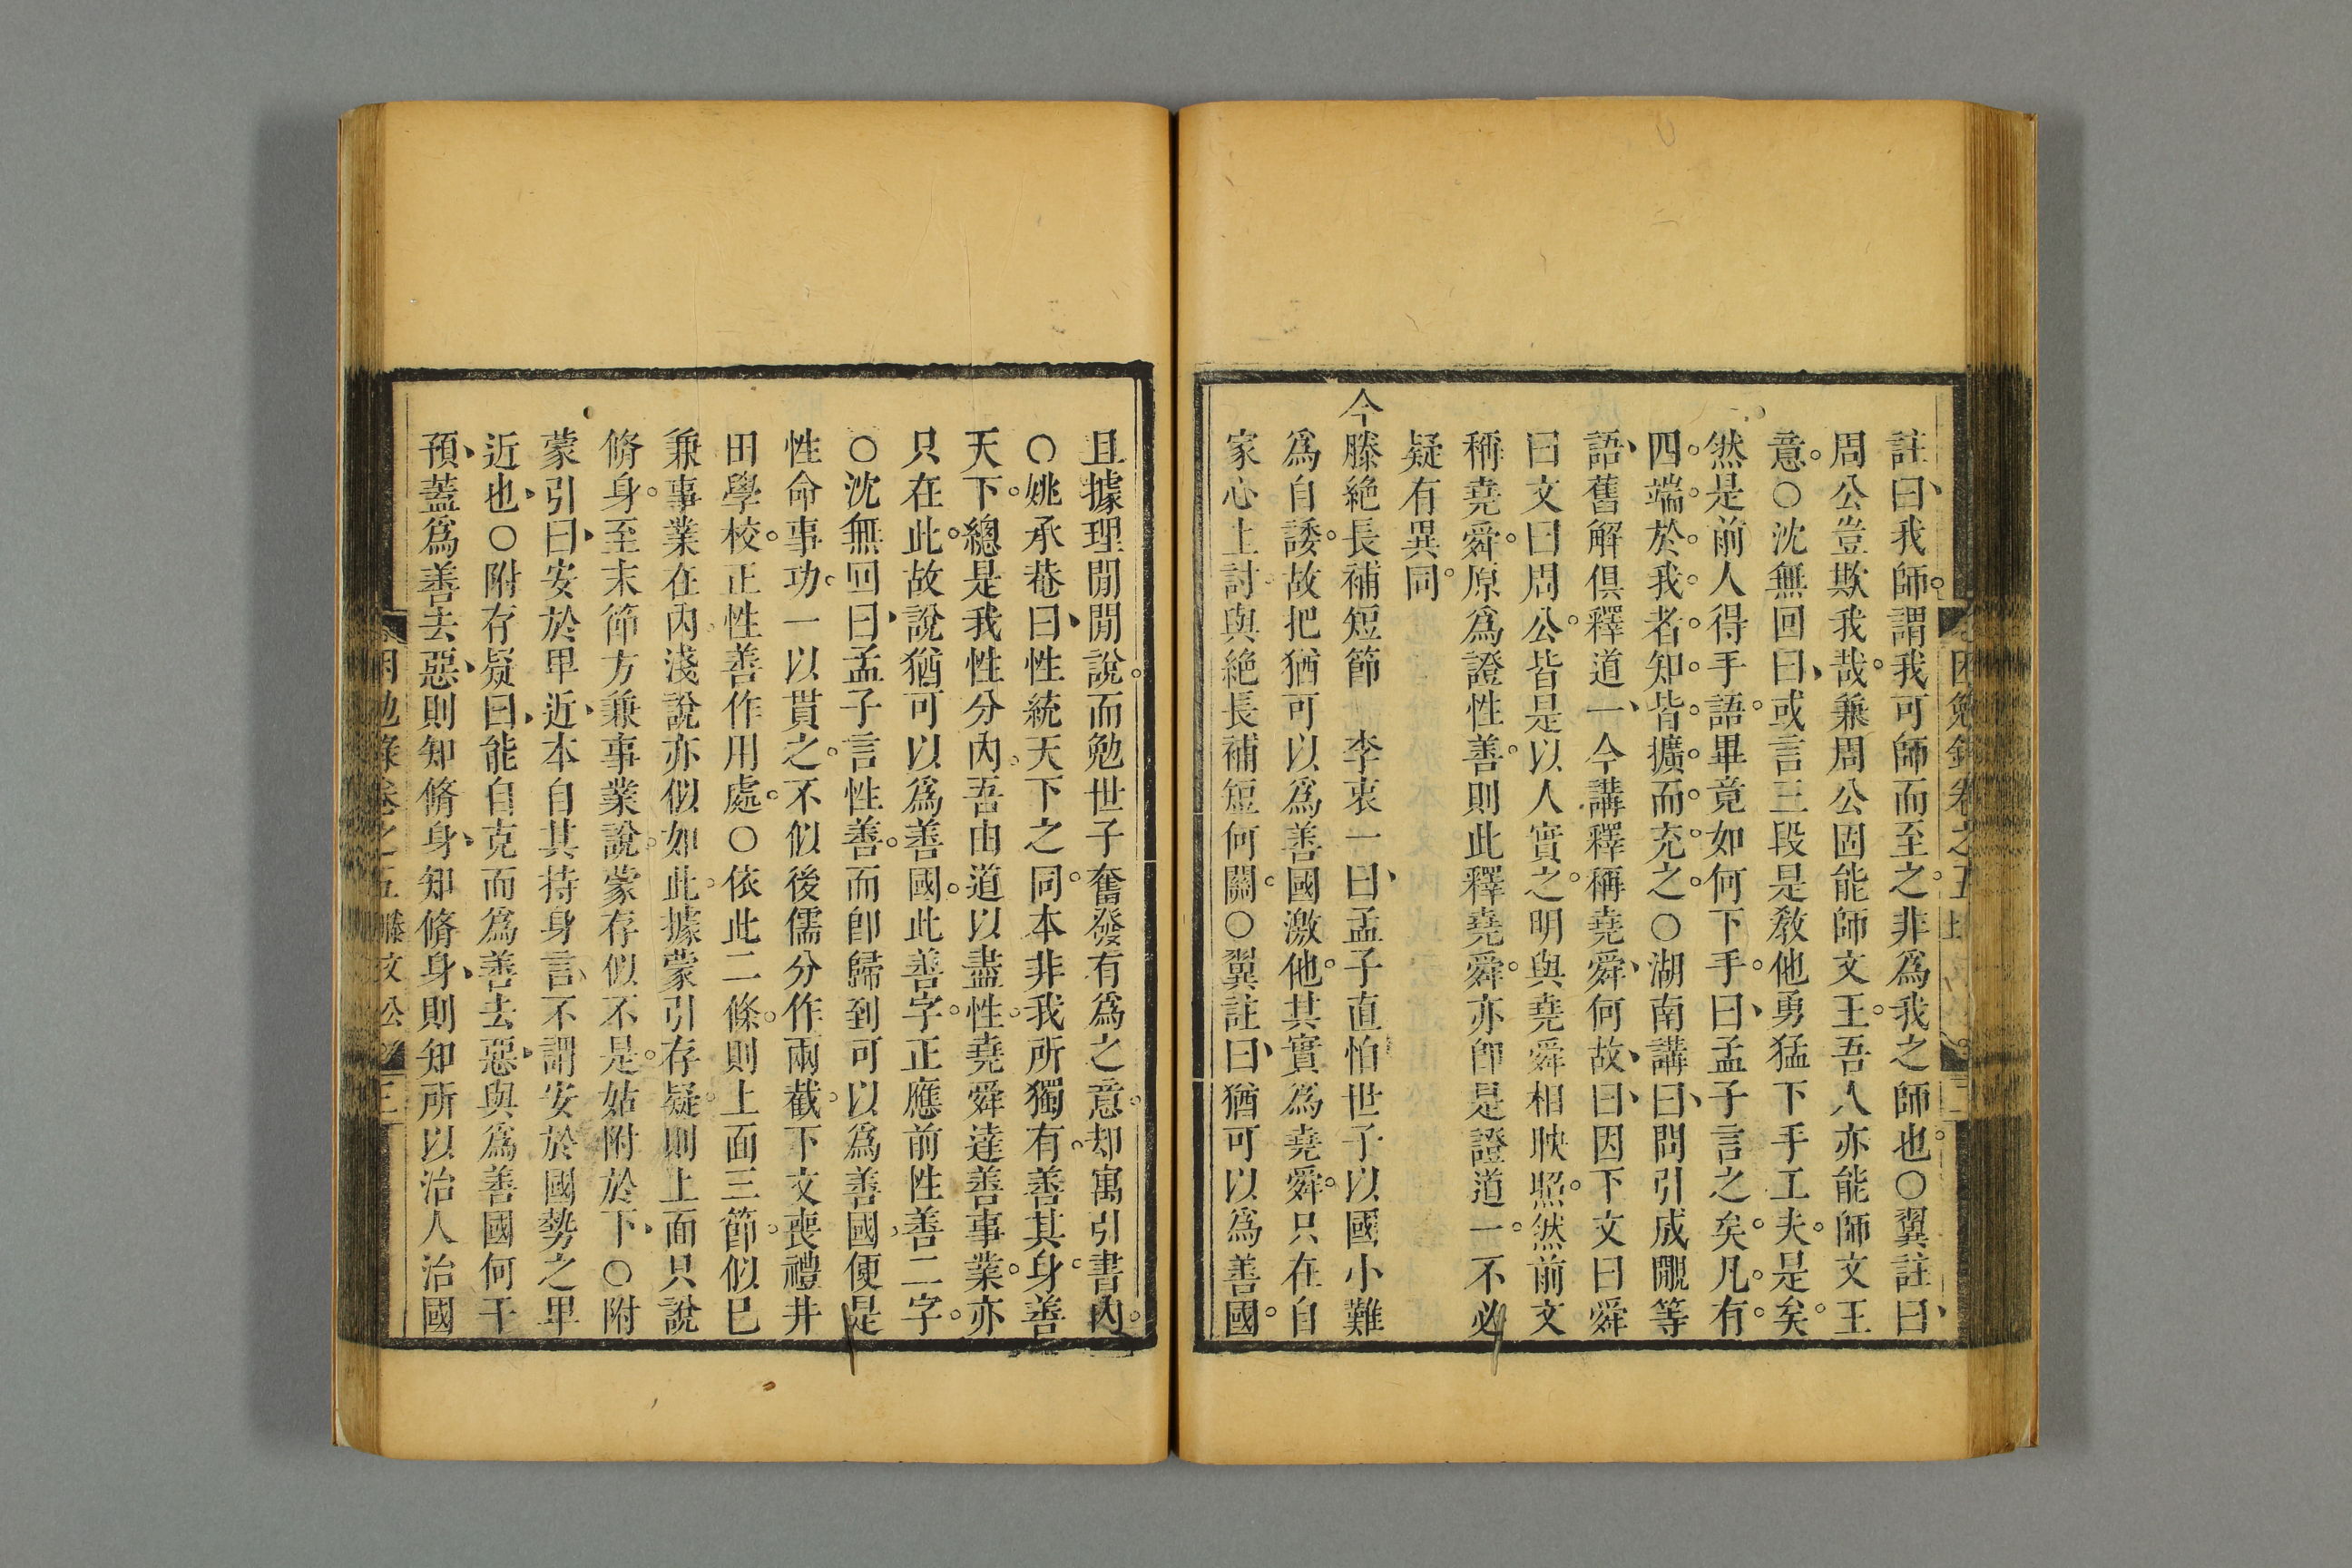 註曰我師謂我可師而至之非爲我之師也○翼註曰
周公豈欺我哉兼周公固能師文王吾人亦能師文王
意○沈無回曰或言三段是敎他勇猛下手工夫是矣
然是前人得手語畢竟如何下手曰孟子言之矣凡有
四端於我者知皆擴而充之○湖南講曰問引成覵等
語舊解俱釋道一今講釋稱堯舜何故曰因下文曰舜
曰文曰周公皆是以人實之明與堯舜相映照然前文
稱堯舜原爲證性善則此釋堯舜亦卽是證道一不必
疑有異同
今滕絶長補短節　李衷一曰孟子直怕世子以國小難
爲自諉故把猶可以爲善國激他其實爲堯舜只在自
家心上討與絶長補短何關○翼註曰猶可以爲善國
且據理閒閒說而勉世子奮發有爲之意却寓引書內
○姚承菴曰性統天下之同本非我所獨有善其身善
天下總是我性分內吾由道以盡性堯舜達善事業亦
只在此故說猶可以爲善國此善字正應前性善二字
○沈無回曰孟子言性善而卽歸到可以爲善國便是
性命事功一以貫之不似後儒分作兩截下文喪禮井
田學校正性善作用處○依此二條則上面三節似已
兼事業在內淺說亦似如此據蒙引存疑則上面只說
脩身至末節方兼事業說蒙存似不是姑附於下○附
蒙引曰安於卑近本自其持身言不謂安於國勢之卑
近也○附存疑曰能自克而爲善去惡與爲善國何干
預蓋爲善去惡則知脩身知脩身則知所以治人治國
困勉錄卷之五 滕文公 三